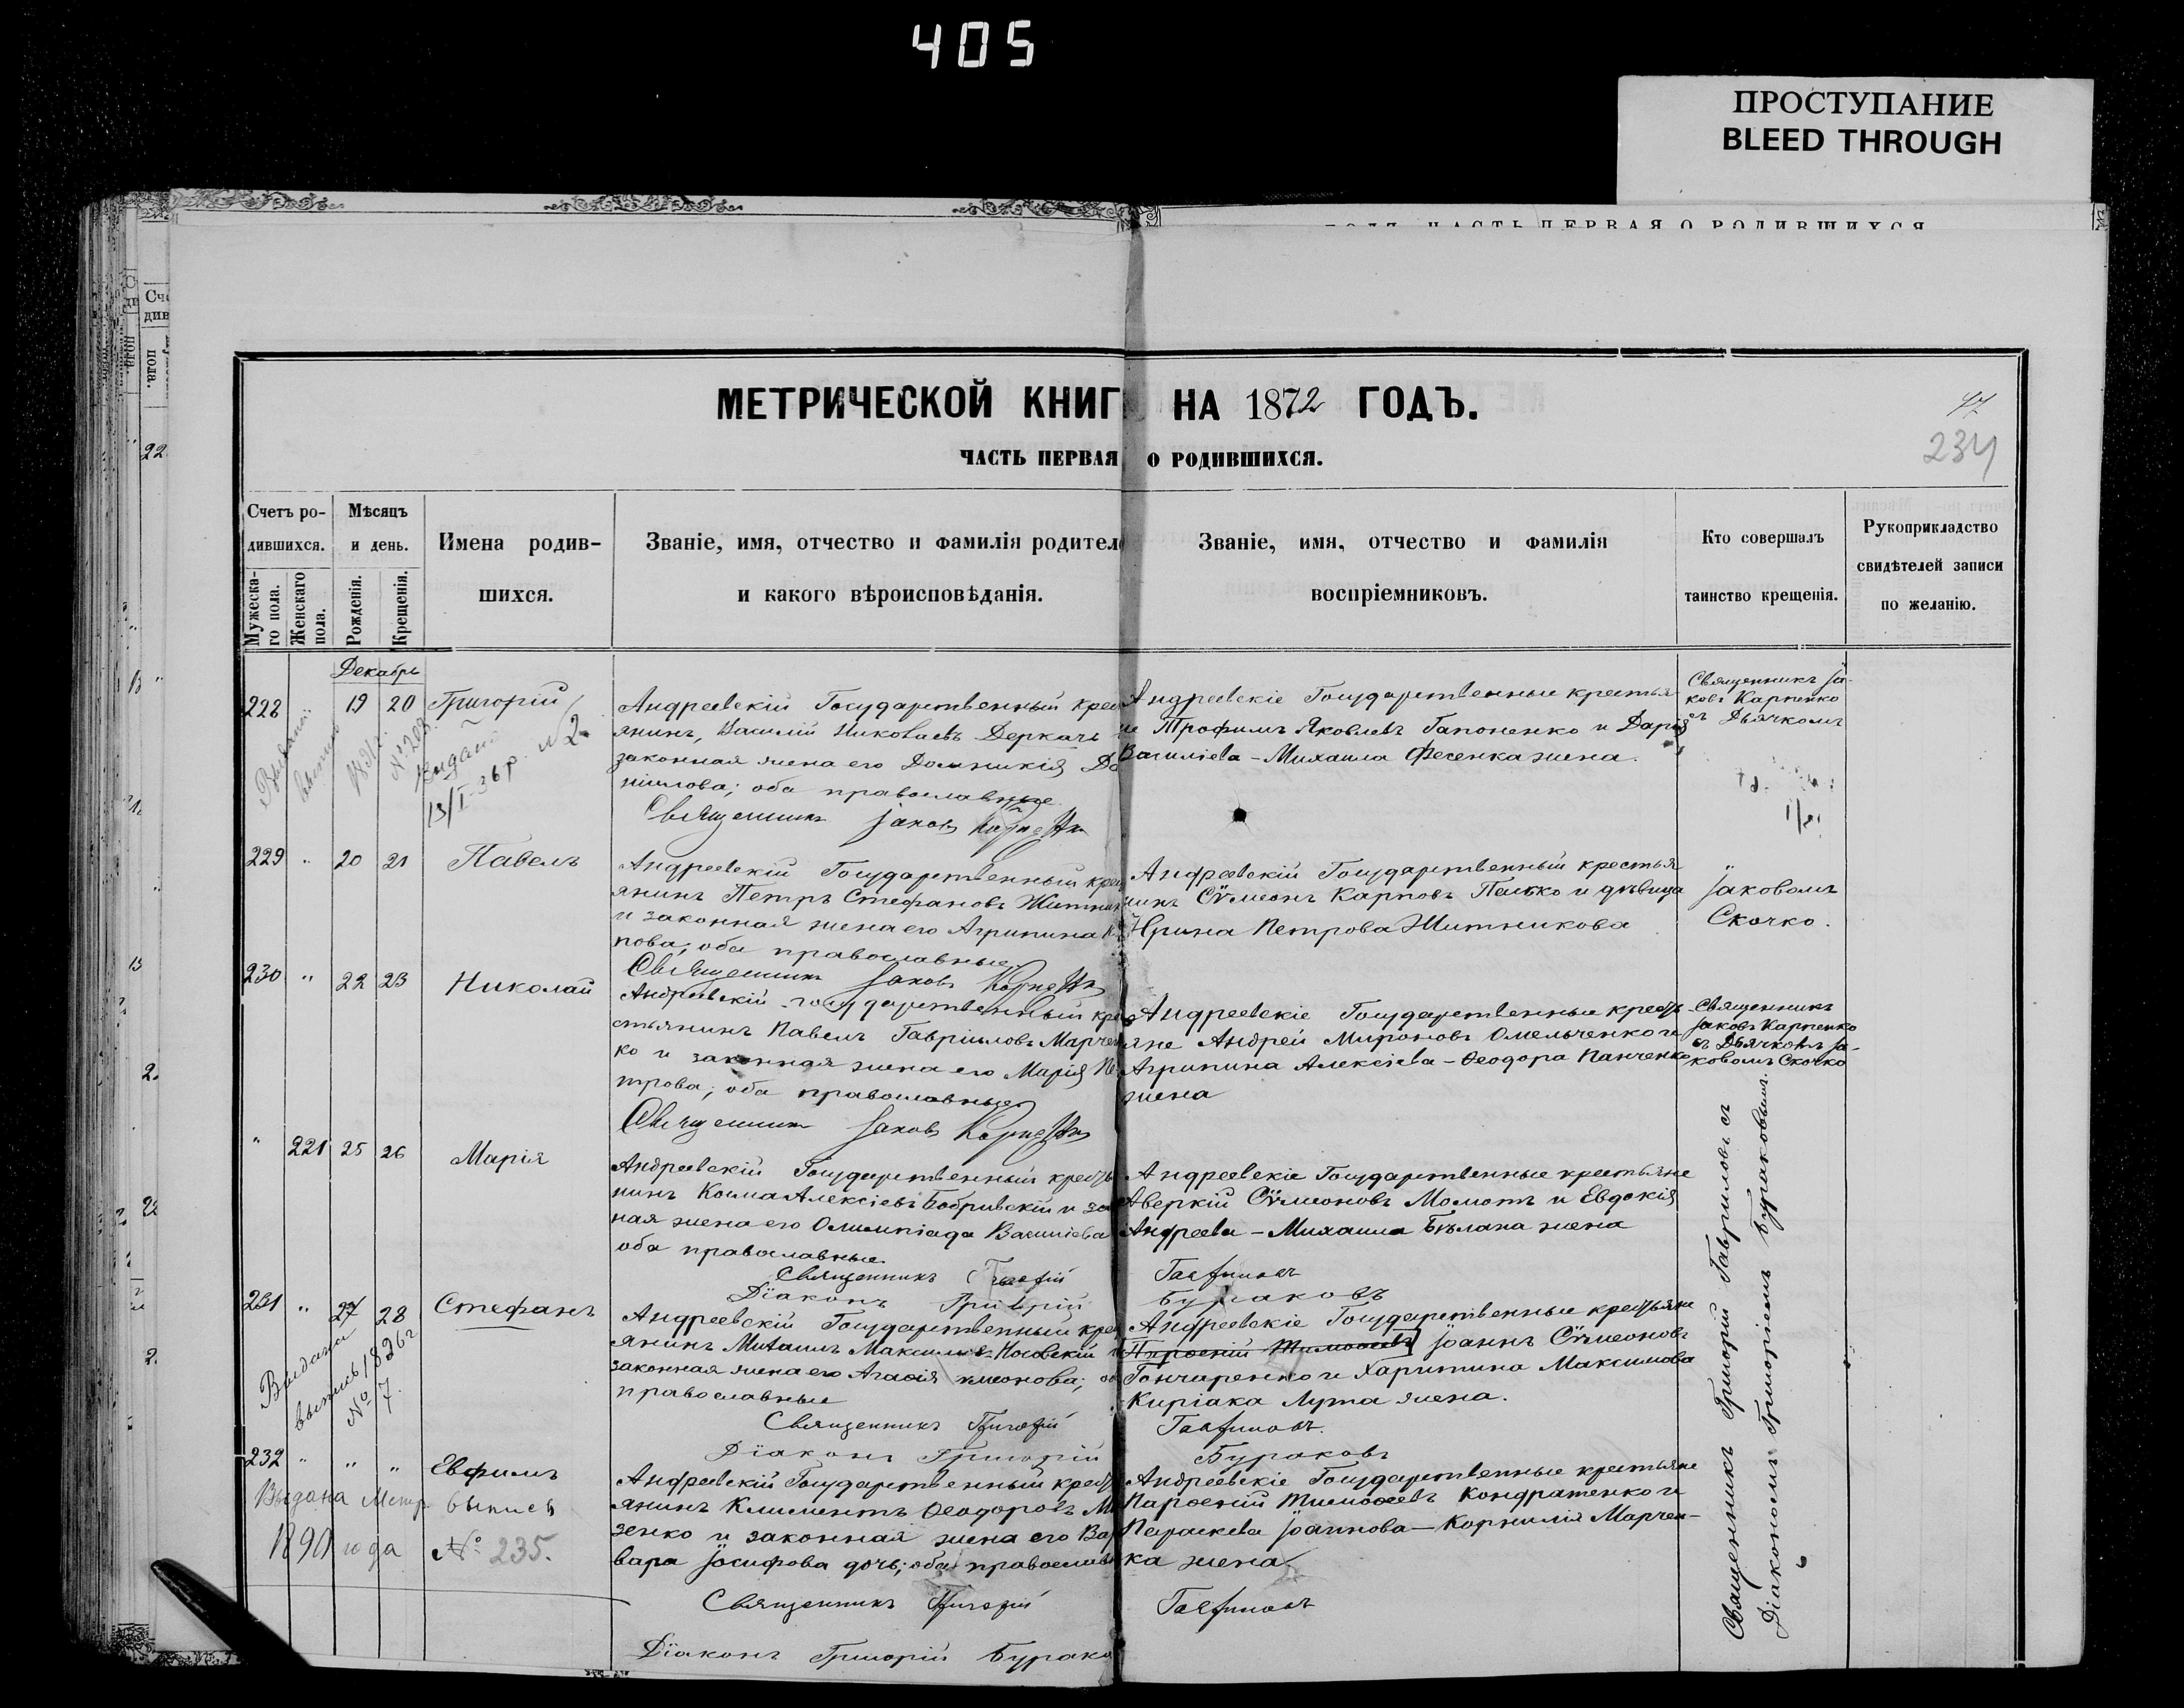 405
ПРОСТУПАНИЕ
BLEED THROUGH
МЕТРИЧЕСКОЙ КНИГ НА 1872 ГОДЪ.
ЧАСТЬ ПЕРВАЯ О РОДИВШИХСЯ.
234
Счетъ ро-
дившихся.
Мужеска-
го пола.
Женскаго
пола.
Мѣсяцъ
и день.
Рожденія.
Крещенія.
Имена родив-
шихся.
Званіе, имя, отчество и фамилія родител
и какого вѣроисповѣданія.
Званіе, имя, отчество и фамилія
воспріемниковъ.
Кто совершалъ
таинство крещенія.
Рукоприкладство
свидѣтелей записи
по желанію.
Декабрь
228 19 20 Григорій
Андреевскій Государственный крес
янинъ, Василій Николаевъ Деркачъ
законная жена его Домникія Да
ніилова; оба православные
Священникъ Іаковъ Карпенко
Андреевскіе Государственные крестья
не Трофимъ Яковлевъ Гапоненко и Дарія
Василіева - Михаила Фесенка жена.
Священникъ Іа-
ковъ Карпенко
съ Дьячкомъ
№ 208.
13/I-36р. №2
229 " 20 21 Павелъ
Андреевскій Государственный крес
янинъ Петръ Стефановъ Житник
и законная жена его Агрипина К
пова; оба православные
Священникъ Іаковъ Карпенко
Андреевскій Государственный крестья
нинъ Сѵмеонъ Карповъ и дѣвица
Ирина Петрова Житникова
Іаковомъ
Скочко.
230 " 22 23 Николай
Андреевскій государственный кре
стьянинъ Павелъ Гавріиловъ Марчен
ко и законная жена его Марія Пе
трова; оба православные
Священникъ Іаковъ Карпенко
Андреевскіе Государственные кресть
яне Андрей Мироновъ Омельченко и
Агрипина Алексіева - Ѳеодора Панченко
жена
Священникъ
Іаковъ Карпенко
съ Дьячкомъ Іа-
ковомъ Скочко
" 221 25 26 Марія
Андреевскій Государственный кресть
нинъ Косма Алексіевъ Бобривскій и за
ная жена его Олимпіада Василіева
оба православные
Священникъ Григорій Гавриловъ
Діаконъ Григорій Бураковъ
Андреевскіе Государственные крестьяне
Аверкій Сѵмеоновъ Момотъ и Евдокія
Андреева - Михаила Бѣлана жена
231 " 27 28 Стефанъ
Андреевскій Государственный крес
янинъ Михаилъ Максимовъ Носовскій
законная жена его Агаѳія
православные
Священникъ Григорій Гавриловъ.
Діаконъ Григорій Бураковъ
Андреевскіе Государственные крестьяне
Іоаннъ Сѵмеоновъ
Гончаренко и Харитина Максимова
Киріака Лута жена.
Выдана
выпись
№ 7.
232 " " " Евфимъ
Андреевскій Государственный кресть
янинъ Климентъ Ѳеодоровъ Ма
зенко и законная жена его Вар
вара Іосифова дочь; оба православн
Священникъ Григорій Гавриловъ
Діаконъ Григорій Бурако
Андреевскіе Государственные крестьяне
Парѳеній Тимоѳеевъ Кондратенко и
Параскева Іоаннова - Корнилія Марчен-
ка жена
Выдана Метр. выпись
1890 года № 235.
Священникъ Григорій Гавриловъ съ
Діакономъ Григоріемъ Бураковымъ.